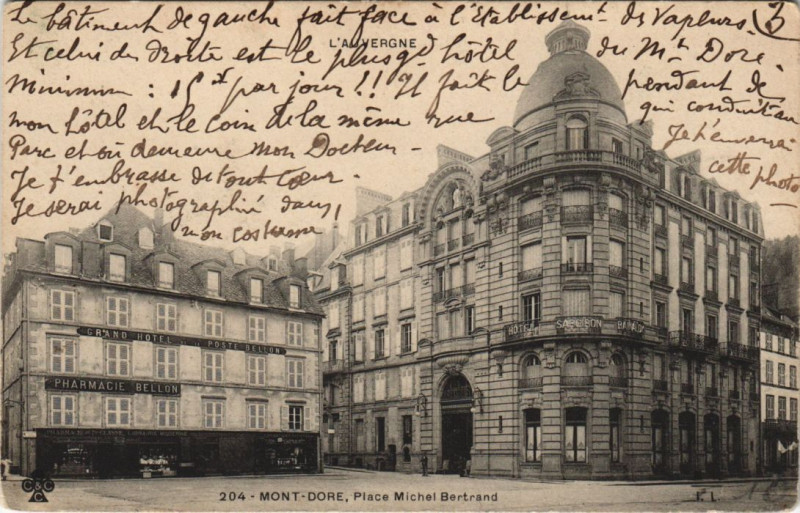 Le bâtiment de gauche fait face à l'Etablissemt des Vapeurs. (3
L'AUVERGNE
Et celui de droite est le plus gd hôtel du Mt Dore.
Minimum : 15f par jour !! Il fait le pendant de
mon hôtel et le coin de la même rue qui conduit au
Parc et où demeure mon Docteur - Je t'enverrai
Je t'embrasse de tout cœur. cette photo
Je serai photographié dans
mon costume
GRAND HOTEL DE LA POSTE BELLON
PHARMACIE BELLON
HÔTEL SARCIRON RAINALDY
204 - MONT-DORE, Place Michel Bertrand